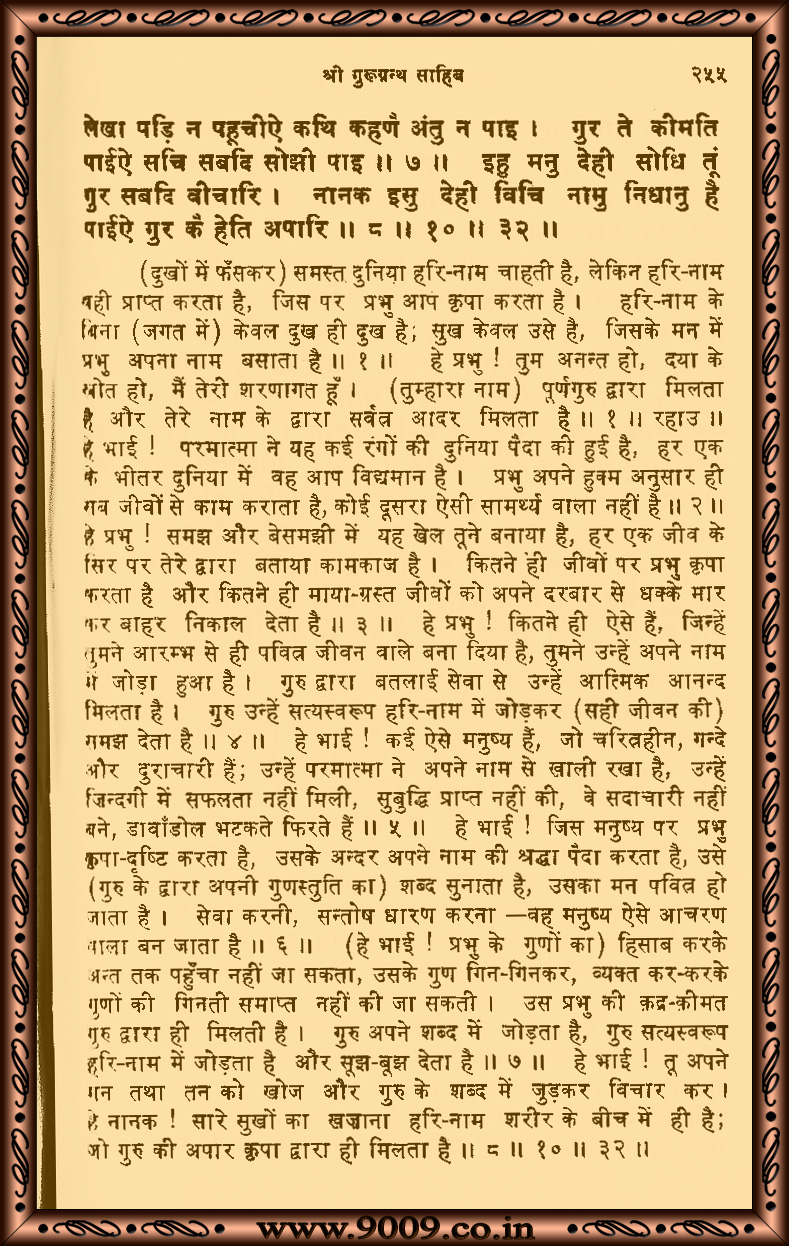 श्री गुरूग्रन्थ साहिब २५५
लेखा पड़ि न पहूचीऐ कथि कहणै अंतु न पाइ । गुर ते कीमति
पाईऐ सचि सबदि सोझी पाइ ॥ ७ ॥ इहु मनु देही सोधि तूं
गुर सबदि बीचारि । नानक इसु देही विचि नामु निधानु है
पाईऐ गुर कै हेति अपारि ॥ ८ ॥ १० ॥ ३२ ॥
(दुखों में फँसकर) समस्त दुनिया हरि-नाम चाहती है, लेकिन हरि-नाम
वही प्राप्त करता है, जिस पर प्रभु आप कृपा करता है । हरि-नाम के
बिना (जगत में) केवल दुख ही दुख है; सुख केवल उसे है, जिसके मन में
प्रभु अपना नाम बसाता है ॥ १ ॥ हे प्रभु ! तुम अनन्त हो, दया के
स्रोत हो, मैं तेरी शरणागत हूँ । (तुम्हारा नाम) पूर्णगुरु द्वारा मिलता
है और तेरे नाम के द्वारा सर्वत्र आदर मिलता है ॥ १ ॥ रहाउ ॥
हे भाई ! परमात्मा ने यह कई रंगों की दुनिया पैदा की हुई है, हर एक
के भीतर दुनिया में वह आप विद्यमान है । प्रभु अपने हुक्म अनुसार ही
सब जीवों से काम कराता है, कोई दूसरा ऐसी सामर्थ्य वाला नहीं है ॥ २ ॥
हे प्रभु ! समझ और बेसमझी में यह खेल तूने बनाया है, हर एक जीव के
सिर पर तेरे द्वारा बताया कामकाज है । कितने ही जीवों पर प्रभु कृपा
करता है और कितने ही माया-ग्रस्त जीवों को अपने दरबार से धक्के मार
कर बाहर निकाल देता है ॥ ३ ॥ हे प्रभु ! कितने ही ऐसे हैं, जिन्हें
तुमने आरम्भ से ही पवित्र जीवन वाले बना दिया है, तुमने उन्हें अपने नाम
में जोड़ा हुआ है । गुरु द्वारा बतलाई सेवा से उन्हें आत्मिक आनन्द
मिलता है । गुरु उन्हें सत्यस्वरूप हरि-नाम में जोड़कर (सही जीवन की)
समझ देता है ॥ ४ ॥ हे भाई ! कई ऐसे मनुष्य हैं, जो चरित्रहीन, गन्दे
और दुराचारी हैं; उन्हें परमात्मा ने अपने नाम से खाली रखा है, उन्हें
जिन्दगी में सफलता नहीं मिली, सुबुद्धि प्राप्त नहीं की, वे सदाचारी नहीं
बने, डावाँडोल भटकते फिरते हैं ॥ ५ ॥ हे भाई ! जिस मनुष्य पर प्रभु
कृपा-दृष्टि करता है, उसके अन्दर अपने नाम की श्रद्धा पैदा करता है, उसे
(गुरु के द्वारा अपनी गुणस्तुति का) शब्द सुनाता है, उसका मन पवित्र हो
जाता है । सेवा करनी, सन्तोष धारण करना —वह मनुष्य ऐसे आचरण
वाला बन जाता है ॥ ६ ॥ (हे भाई ! प्रभु के गुणों का) हिसाब करके
अन्त तक पहुँचा नहीं जा सकता, उसके गुण गिन-गिनकर, व्यक्त कर-करके
गुणों की गिनती समाप्त नहीं की जा सकती । उस प्रभु की क़द्र-क़ीमत
गुरु द्वारा ही मिलती है । गुरु अपने शब्द में जोड़ता है, गुरु सत्यस्वरूप
हरि-नाम में जोड़ता है और सूझ-बूझ देता है ॥ ७ ॥ हे भाई ! तू अपने
मन तथा तन को खोज और गुरु के शब्द में जुड़कर विचार कर ।
हे नानक ! सारे सुखों का खज़ाना हरि-नाम शरीर के बीच में ही है;
जो गुरु की अपार कृपा द्वारा ही मिलता है ॥ ८ ॥ १० ॥ ३२ ॥
www.9009.co.in